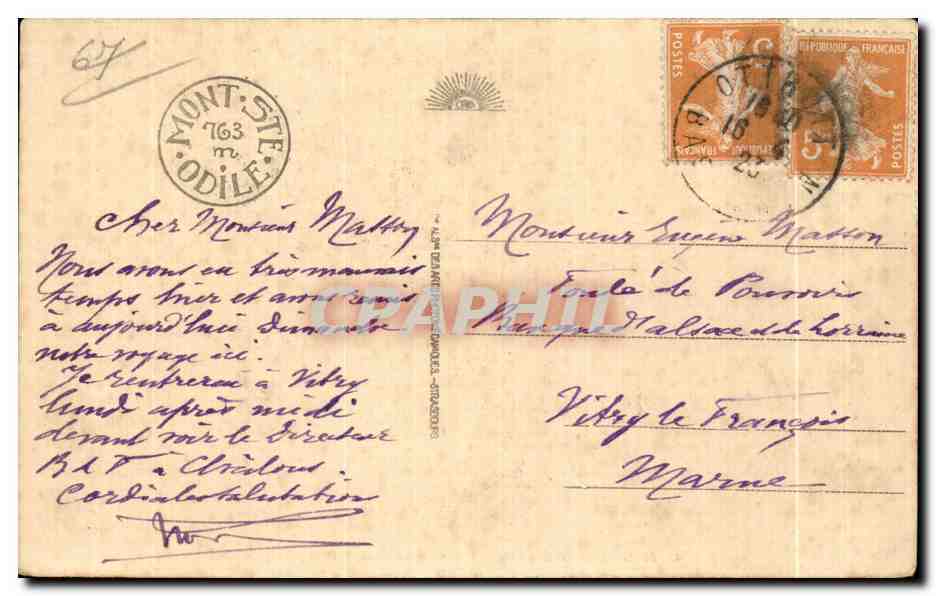 67
MONT·STE·ODILE
763
m
Cher Monsieur Masson
Nous avons eu très mauvais
temps hier et avons remis
à aujourd'hui Dimanche
notre voyage ici.
Je rentrerai à Vitry
lundi après midi
devant voir le Directeur
B d F à Châlons.
Cordiales salutations
CPAPHIL
POSTES
RÉPUBLIQUE FRANÇAISE
5
RÉPUBLIQUE FRANÇAISE
POSTES
5
OTTROTT
16
23
BAS
Monsieur Eugène Masson
Fondé de Pouvoirs
Banque d'alsace et de Lorraine
Vitry le François
Marne